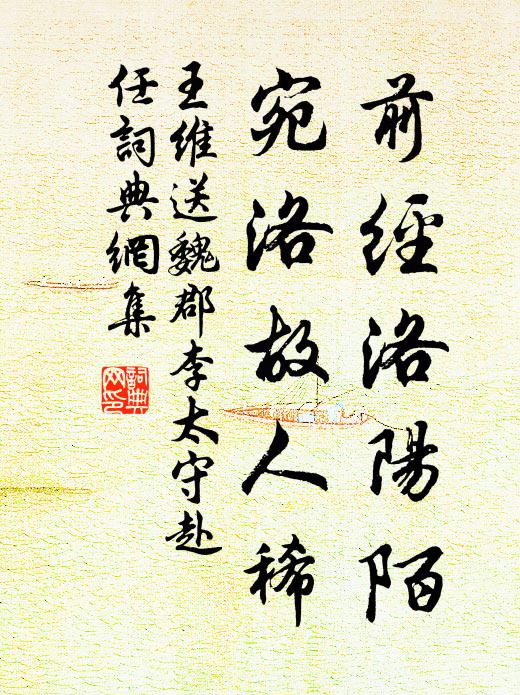 前經洛陽陌
宛洛故人稀
王維送魏郡李太守赴
任詞典網集
詞典网印